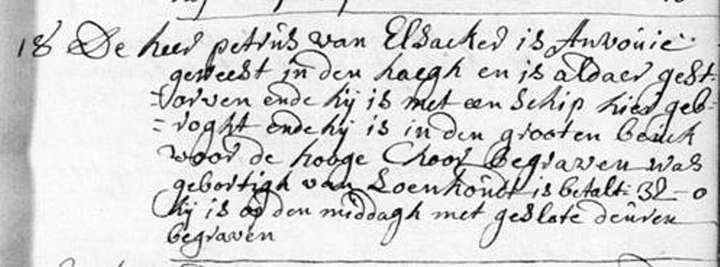 18 De heer petrus van Elsacker is Anvoúie
geweest in den haegh en is aldaer gest:
=orven ende hij is met een schip hier geb-
=roght ende hij is in den grooten beuck
voor de hooge Choor begraven was
gebortigh van Loenhoudt is betalt: 32-0
hij is op den middagh met geslote deúren
begraven